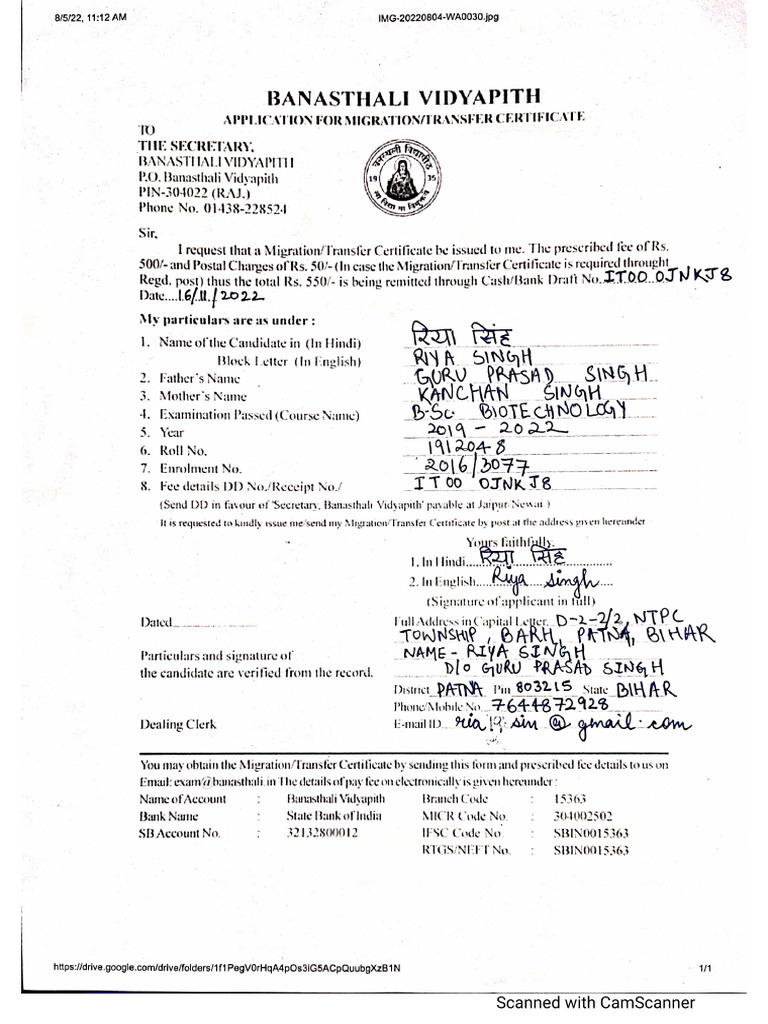 8/5/22, 11:12 AM IMG-20220804-WA0030.jpg
BANASTHALI VIDYAPITH
APPLICATION FOR MIGRATION/TRANSFER CERTIFICATE
TO
THE SECRETARY,
BANASTHALI VIDYAPITH
P.O. Banasthali Vidyapith
PIN-304022 (RAJ.)
Phone No. 01438-228524
वनस्थली विद्यापीठ
19 35
सा विद्या या विमुक्तये
Sir,
I request that a Migration/Transfer Certificate be issued to me. The prescribed fee of Rs.
500/- and Postal Charges of Rs. 50/- (In case the Migration/Transfer Certificate is required throught
Regd. post) thus the total Rs. 550/- is being remitted through Cash/Bank Draft No. IT00 0JNKJ8
Date....16/11/2022
My particulars are as under :
1. Name of the Candidate in (In Hindi) रिया सिंह
Block Letter (In English) RIYA SINGH
2. Father's Name GURU PRASAD SINGH
3. Mother's Name KANCHAN SINGH
4. Examination Passed (Course Name) B.Sc. BIOTECHNOLOGY
5. Year 2019 - 2022
6. Roll No. 1912048
7. Enrolment No. 2016/3077
8. Fee details DD No./Receipt No./ IT00 0JNKJ8
(Send DD in favour of 'Secretary, Banasthali Vidyapith' payable at Jaipur/Newai )
It is requested to kindly issue me/send my Migration/Transfer Certificate by post at the address given hereunder
Yours faithfully,
1. In Hindi.....रिया सिंह
2. In English....Riya Singh
(Signature of applicant in full)
Dated
Full Address in Capital Letter. D-2-2/2, NTPC
TOWNSHIP, BARH, PATNA, BIHAR
Particulars and signature of NAME - RIYA SINGH
the candidate are verified from the record. D/O GURU PRASAD SINGH
District PATNA Pin 803215 State BIHAR
Phone/Mobile No. 7644872928
Dealing Clerk E-mail ID ria19.sin@gmail.com
You may obtain the Migration/Transfer Certificate by sending this form and prescribed fee details to us on
Email: exam@banasthali.in The details of pay fee on electronically is given hereunder :
Name of Account : Banasthali Vidyapith Branch Code : 15363
Bank Name : State Bank of India MICR Code No. : 304002502
SB Account No. : 32132800012 IFSC Code No : SBIN0015363
RTGS/NEFT No. : SBIN0015363
https://drive.google.com/drive/folders/1f1PegV0rHqA4pOs3iG5ACpQuubgXzB1N 1/1
Scanned with CamScanner